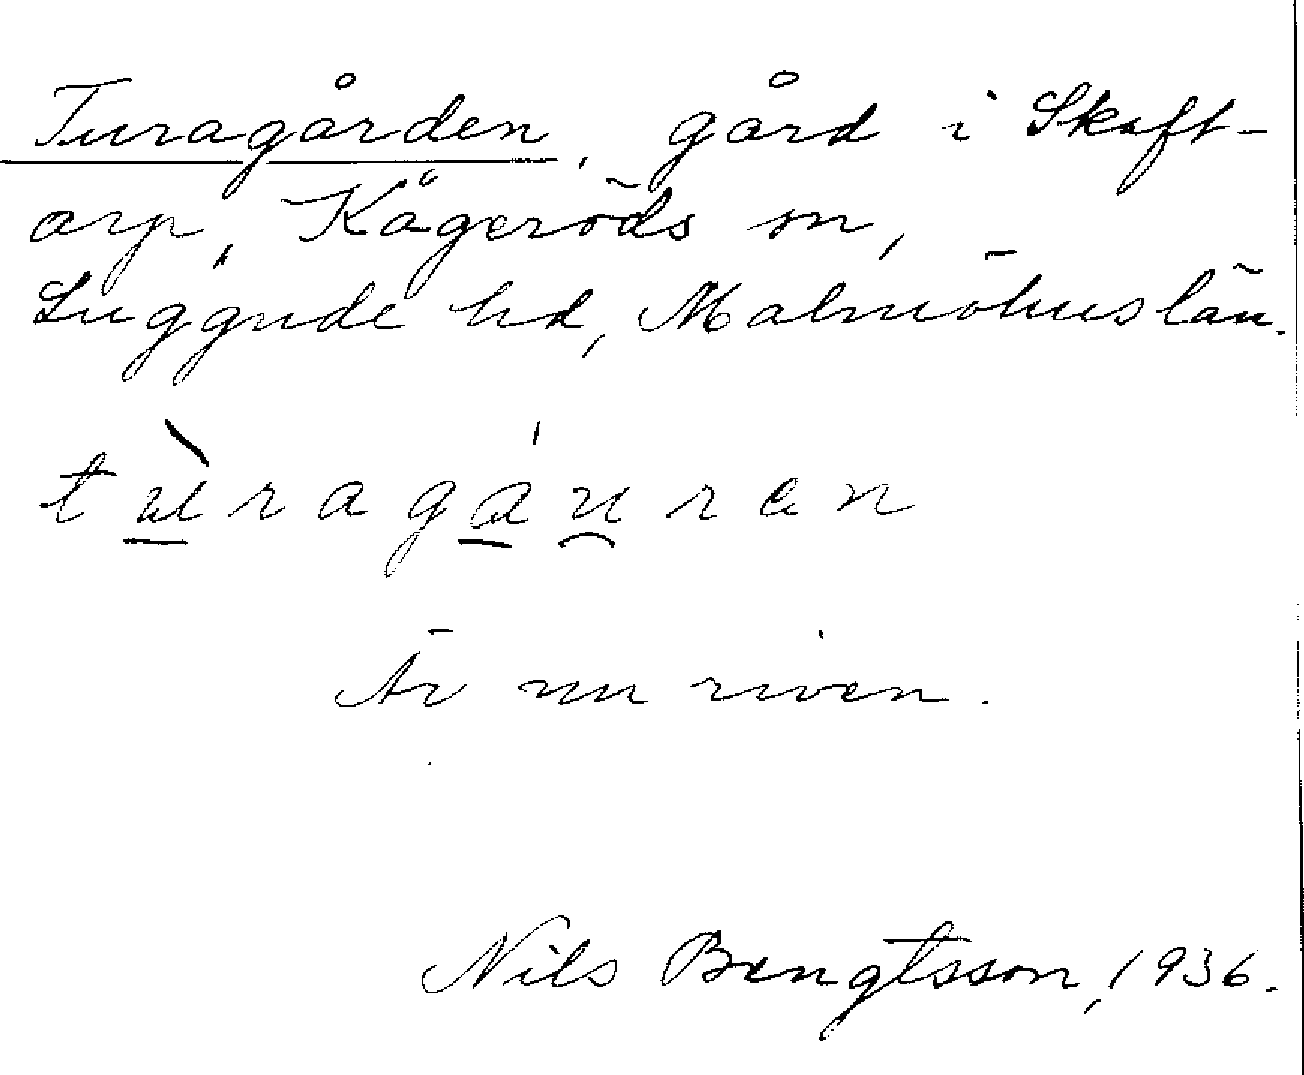 Turagården, gård i Skaft-
arp, Kågeröds sn,
Luggude hd, Malmöhus län.
tù̲ragá̲u̯ren
Är nu riven.
Nils Bengtsson, 1936.